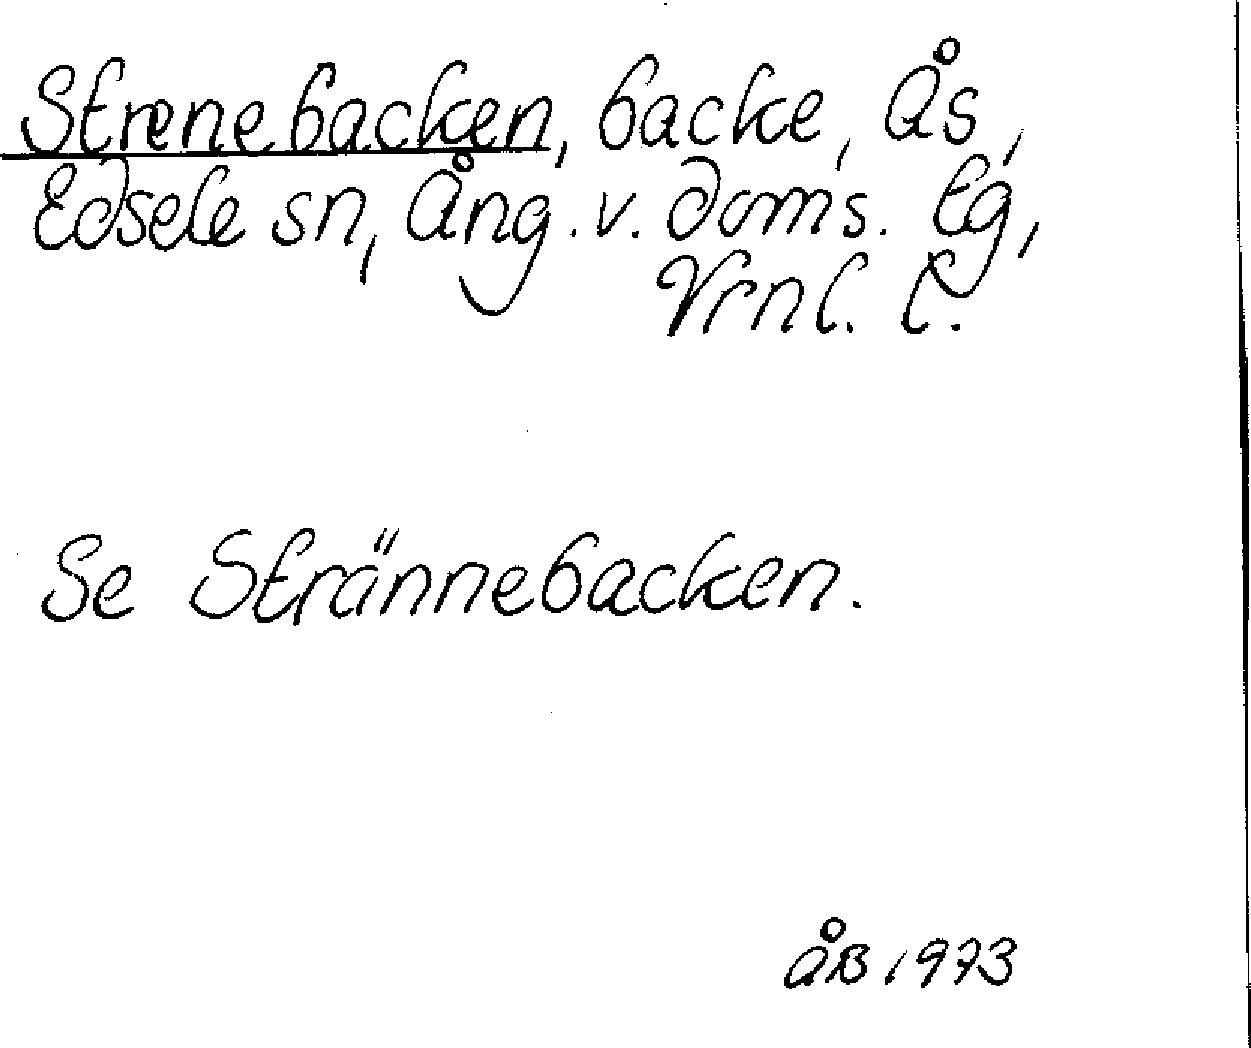 Strenebacken, backe, Ås,
Edsele sn, Ång. v. doms. tg,
Vrnl. l.
Se Strännebacken.
ÅB 1973